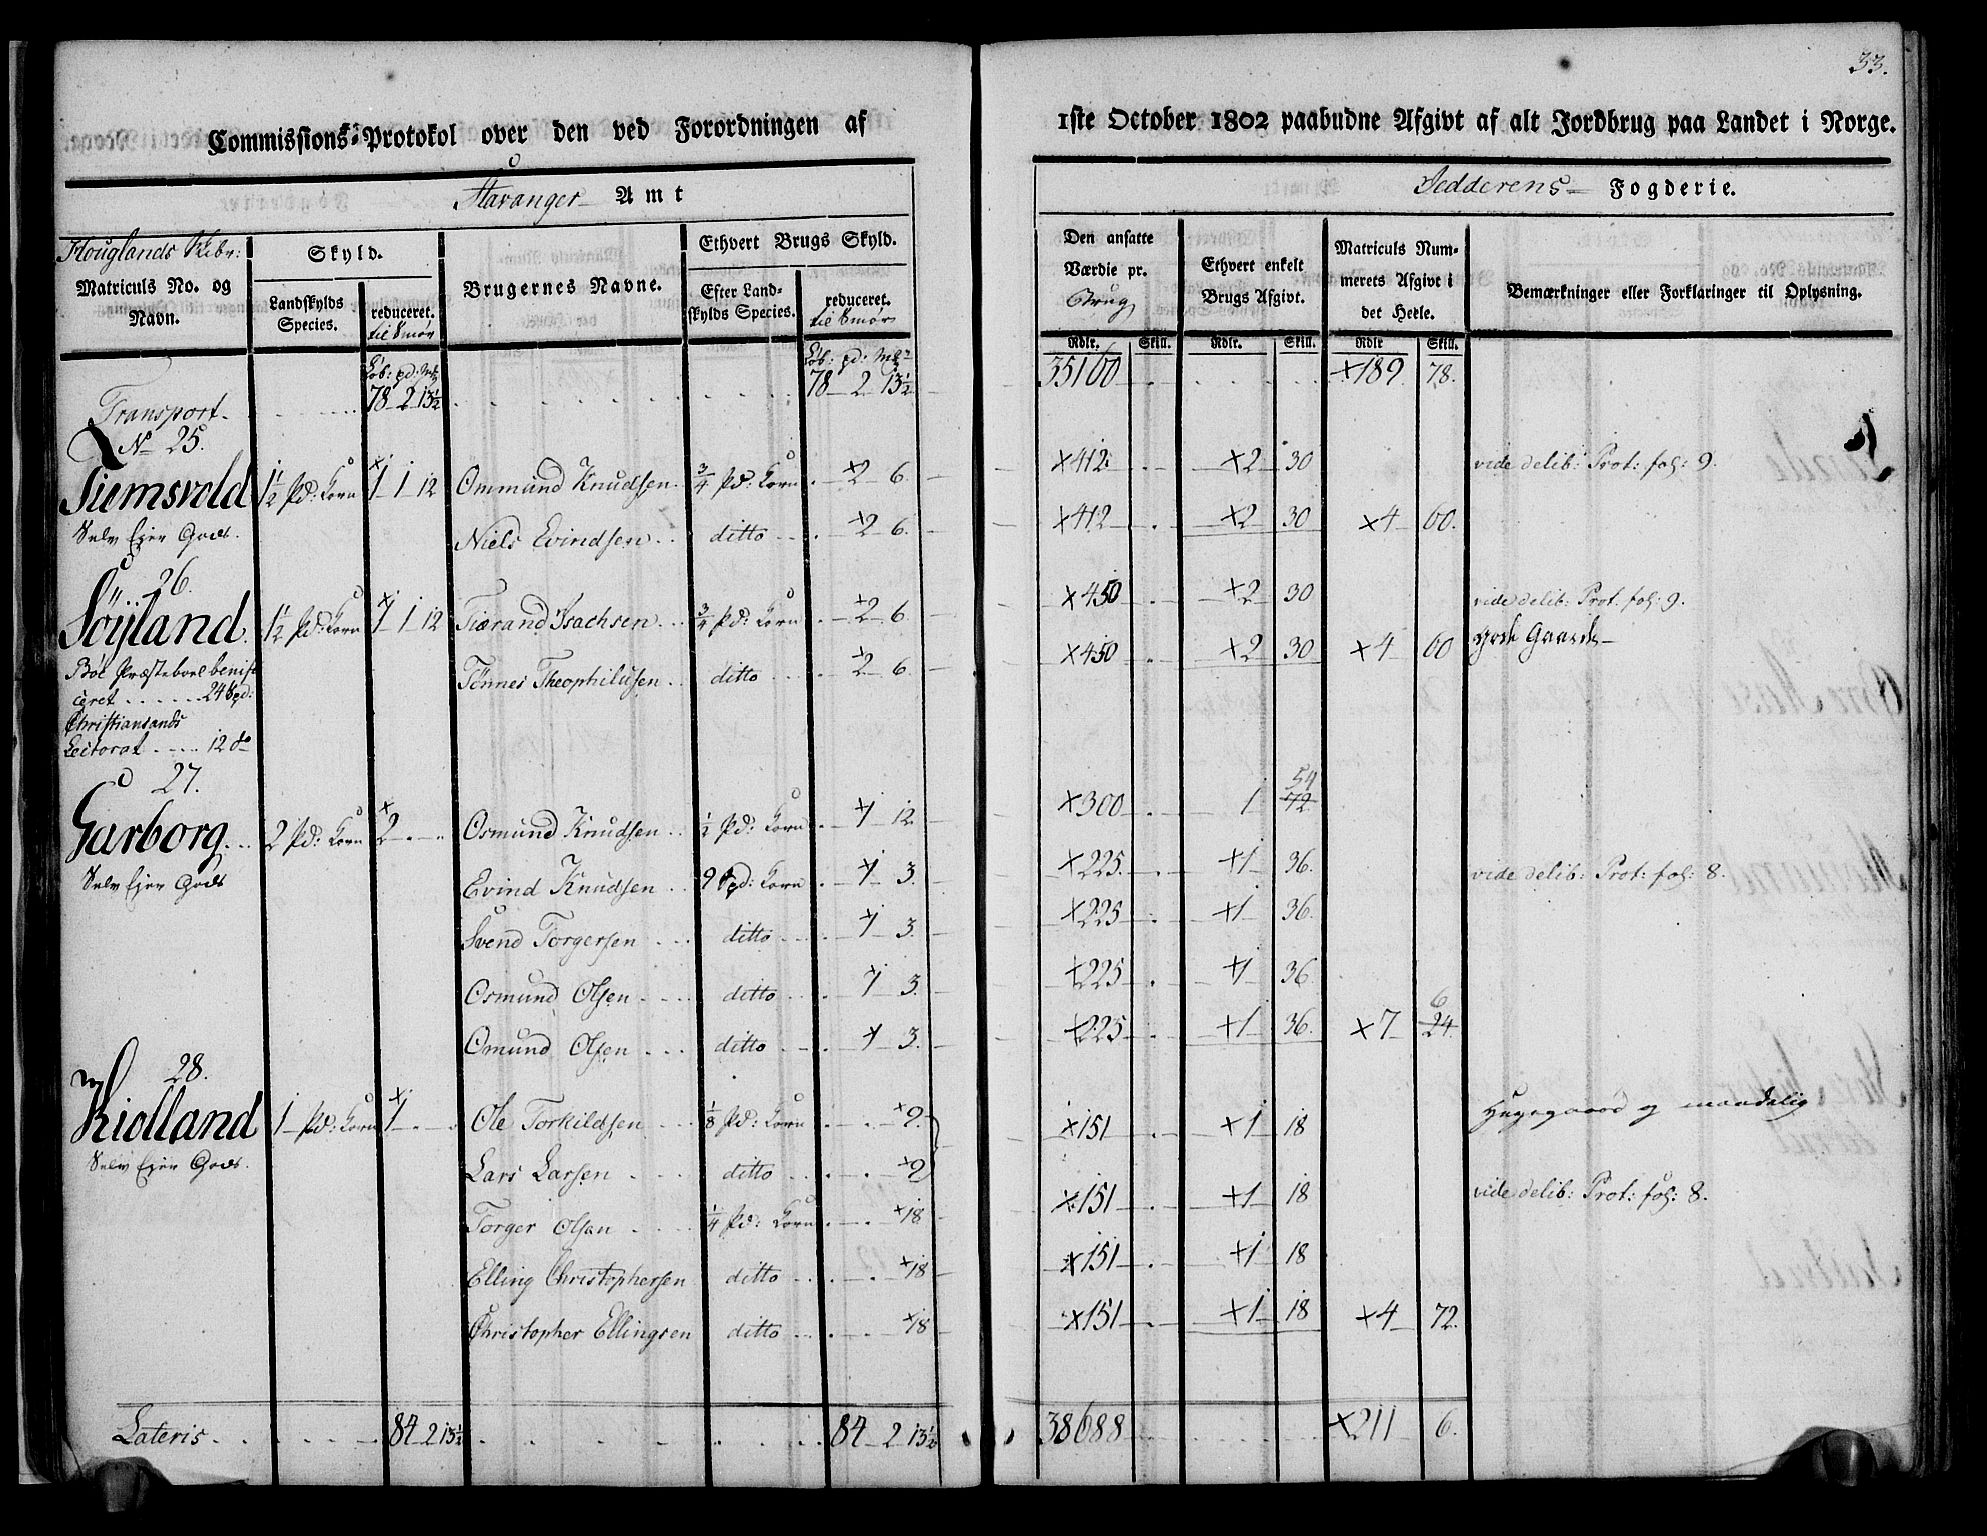 33.
Commissions-Protokol over den ved Forordningen af 1ste October 1802 paabudne Afgivt af alt Jordbrug paa Landet i Norge.
Stavanger Amt
Jedderens Fogderie.
Houglands Skibr:
Matriculs No. og Navn.
Skyld.
Landskylds Species.
reduceret. til Smör
Brugernes Navne.
Ethvert Brugs Skyld.
Efter Landskylds Species.
reduceret. til Smör
Den ansatte Værdie pr. Brug
Ethvert enkelt Brugs Afgivt.
Matriculs Nummerets Afgivt i det Heele.
Bemærkninger eller Forklaringer til Oplysning.
Rdlr. Skill. Rdlr. Skill. Rdlr Skill.
Transport 78 2 13½ 78 2 13½ 35160 ×189 78.
No 25.
Tiemsvold 1½ Pd: Korn 1 1 12 Ommund Knudsen ¾ Pd: Korn 2 6 ×412 ×2 30 vide delib: Prot: fol: 9.
Selv Ejer Gods. Niels Evindsen ditto 2 6. ×412 ×2 30 ×4 60.
26.
Söÿland 1½ Pd: Korn 1 1 12 Tiærand Isachsen ¾ Pd: Korn 2 6 ×450 ×2 30 vide delib: Prot. fol: 9.
Tönnes Theophilusen ditto 2 6 ×450 ×2 30 ×4 60 gode Gaarde
Böe Præsteboel benificeret 24 Spd:
Christiansands
Lectorat 12 do
27.
Garborg 2 Pd: Korn 2 Osmund Knudsen ½ Pd: Korn 1 12 ×300 1 54 72
Selv Ejer Gods Evind Knudsen 9 Spd: Korn 1 3. ×225. ×1 36. vide delib: Prot: fol: 8.
Svend Torgersen ditto 1 3. ×225 ×1 36.
Osmund Olsen ditto 1 3. ×225 ×1 36
Omund Olsen ditto 1 3. ×225 ×1 36. ×7 6 24
28.
Kiolland 1 Pd: Korn 1 Ole Torkildsen ⅛ Pd: Korn 9. ×151 ×1 18
Selv Ejer Gods. Lars Larsen ditto 9
Torger Olsen ¼ Pd: Korn 18 ×151 ×1 18 vide delib: Prot: fol: 8.
Elling Christophersen ditto 18 ×151 ×1 18
Christopher Ellingsen ditto 18 ×151 ×1 18 ×4 72.
Lateris 84 2 13½ 84 2 13½ 38688 ×211 6.